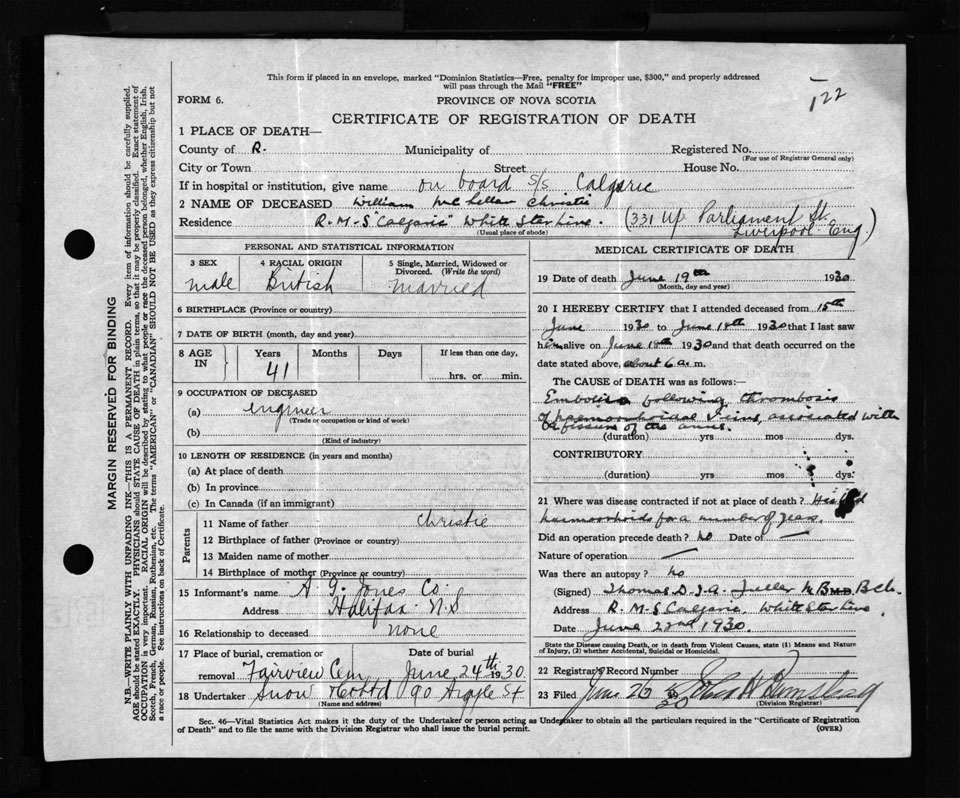 This form if placed in an envelope, marked "Dominion Statistics—Free, penalty for improper use, $300," and properly addressed
will pass through the Mail "FREE"
122
FORM 6.
PROVINCE OF NOVA SCOTIA
CERTIFICATE OF REGISTRATION OF DEATH
1 PLACE OF DEATH—
County of R. Municipality of Registered No.
(For use of Registrar General only)
City or Town Street House No.
If in hospital or institution, give name on board S/S Calgaric
2 NAME OF DECEASED William Mc Lellan Christie
Residence R.M.S "Calgaric" White Star Line. (331 Up Parliament St. Liverpool Eng.)
(Usual place of abode)
PERSONAL AND STATISTICAL INFORMATION
3 SEX 4 RACIAL ORIGIN 5 Single, Married, Widowed or Divorced. (Write the word)
male British married
6 BIRTHPLACE (Province or country)
7 DATE OF BIRTH (month, day and year)
8 AGE IN Years Months Days If less than one day,
41 hrs. or min.
9 OCCUPATION OF DECEASED
(a) engineer
(Trade or occupation or kind of work)
(b)
(Kind of industry)
10 LENGTH OF RESIDENCE (in years and months)
(a) At place of death
(b) In province
(c) In Canada (if an immigrant)
Parents
11 Name of father Christie
12 Birthplace of father (Province or country)
13 Maiden name of mother
14 Birthplace of mother (Province or country)
15 Informant's name A G. Jones Co
Address Halifax N.S
16 Relationship to deceased none
17 Place of burial, cremation or Date of burial
removal Fairview Cem June 24th 1930
18 Undertaker Snow &Co Ltd 90 Argyle St
(Name and address)
MEDICAL CERTIFICATE OF DEATH
19 Date of death June 19th 1930
(Month, day and year)
20 I HEREBY CERTIFY that I attended deceased from 15th
June 1930 to June 18th 1930 that I last saw
him alive on June 18th 1930 and that death occurred on the
date stated above, about 6 a. m.
The CAUSE OF DEATH was as follows:—
Embolism following thrombosis
of haemorrhoidal Veins, associated with
a fissure of the anus.
(duration) yrs mos dys.
CONTRIBUTORY
(duration) yrs mos ? dys.
21 Where was disease contracted if not at place of death? He had
haemorrhoids for a number of years.
Did an operation precede death? no Date of —
Nature of operation —
Was there an autopsy? no
(Signed) Thomas D.J.A. Fuller M B M.D. B Ch.
Address R.M.S Calgaric, White Star Line.
Date June 22nd 1930.
State the Disease causing Death, or in death from Violent Causes, state (1) Means and Nature
of Injury, (2) whether Accidental, Suicidal or Homicidal.
22 Registrar's Record Number
23 Filed June 26 1930
(Division Registrar)
Sec. 46—Vital Statistics Act makes it the duty of the Undertaker or person acting as Undertaker to obtain all the particulars required in the "Certificate of Registration
of Death" and to file the same with the Division Registrar who shall issue the burial permit.
(OVER)
MARGIN RESERVED FOR BINDING
N.B.—WRITE PLAINLY WITH UNFADING INK—THIS IS A PERMANENT RECORD. Every item of information should be carefully supplied.
AGE should be stated EXACTLY. PHYSICIANS should STATE CAUSE OF DEATH in plain terms, so that it may be properly classified. Exact statement of
OCCUPATION is very important. RACIAL ORIGIN will be described by stating to what people or race the deceased person belonged, whether English, Irish,
Scotch, French, German, Russian, Ruthenian, etc. The terms "AMERICAN" or "CANADIAN" SHOULD NOT BE USED as they express citizenship but not
a race or people. See instructions on back of Certificate.